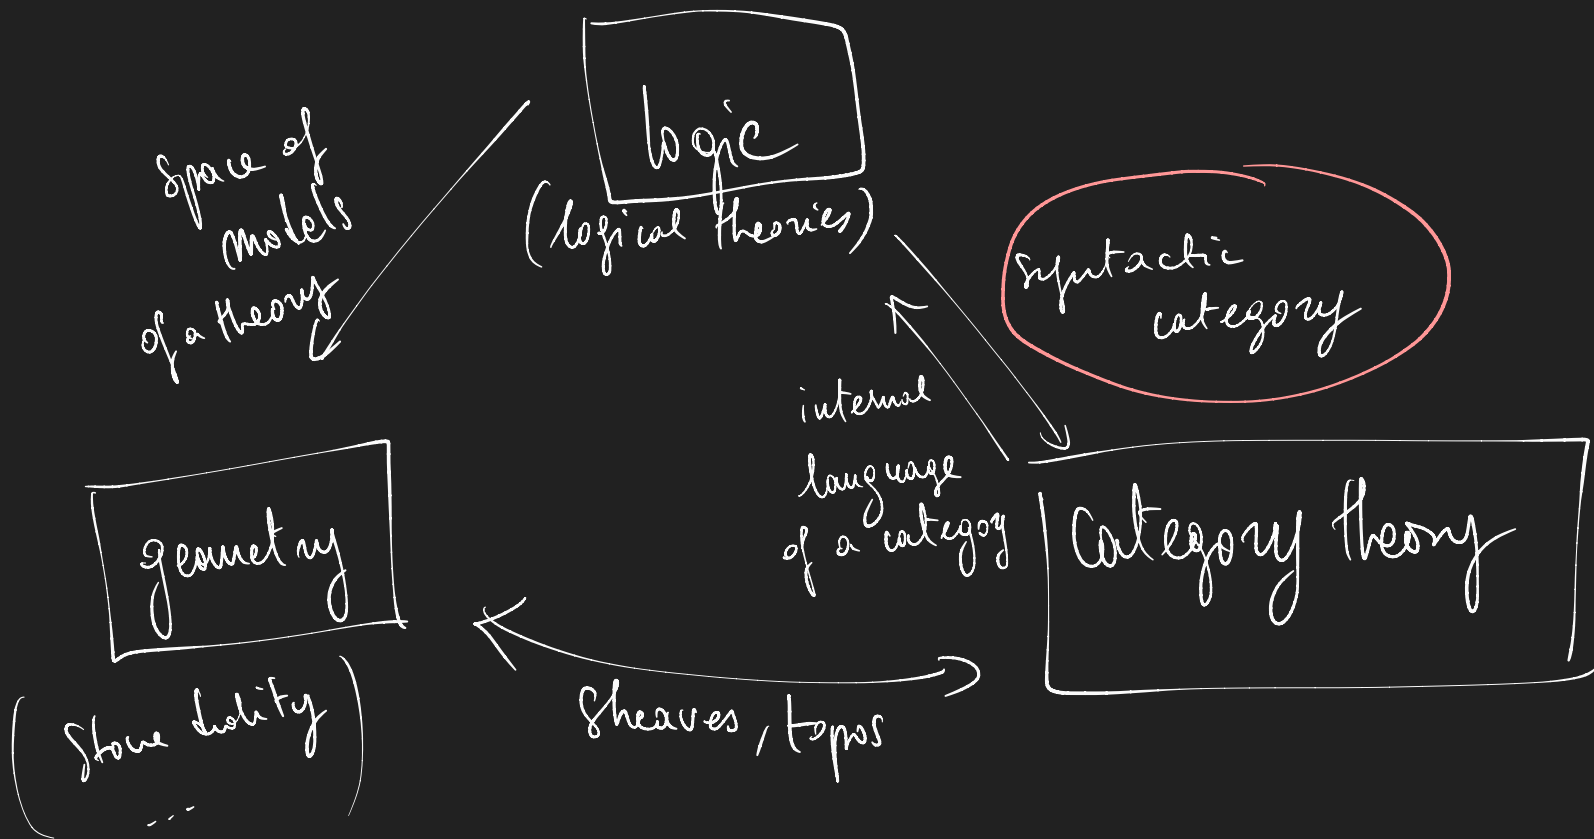 logic
(logical theories)
space of
models
of a theory
syntactic
category
internal
language
of a category
geometry
category theory
(Stone duality
...)
Sheaves, topos